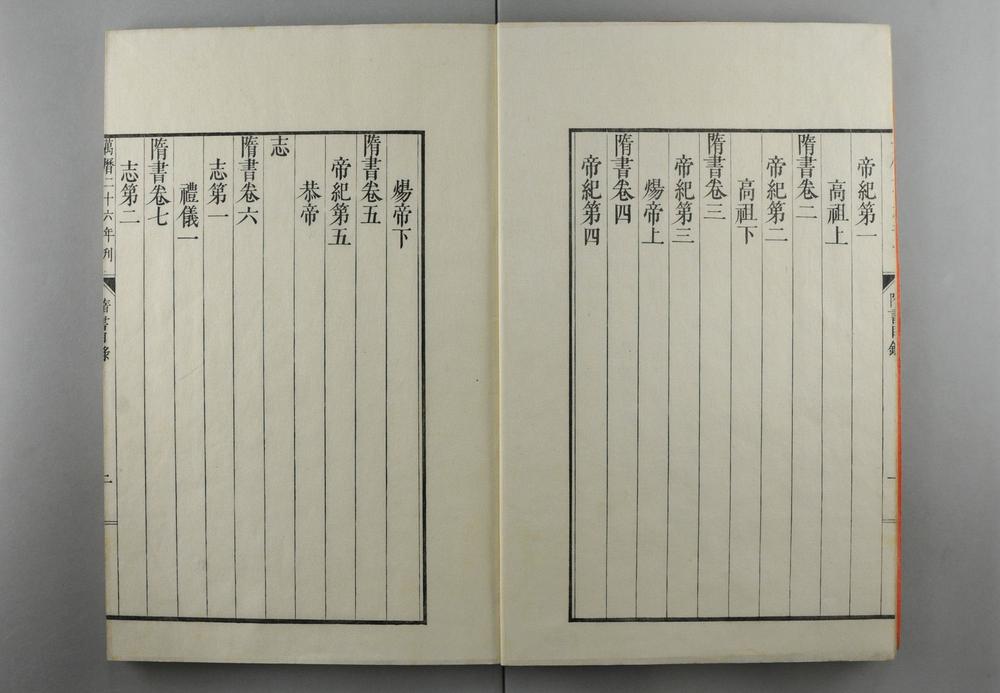 帝紀第一
高祖上
隋書卷二
帝紀第二
高祖下
隋書卷三
帝紀第三
煬帝上
隋書卷四
帝紀第四
隋書目錄
一
煬帝下
隋書卷五
帝紀第五
恭帝
志
隋書卷六
志第一
禮儀一
隋書卷七
志第二
萬曆二十六年刋
隋書目錄
二